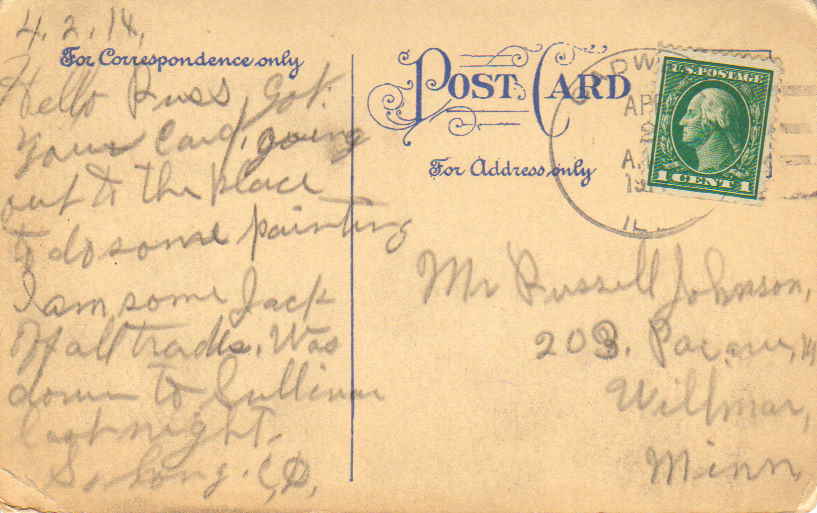 4.2.14.
For Correspondence only
Hello Russ, Got
Your Card, going
out to the place
to do some painting
I am some Jack
of all trades. Was
down to Sullivan
last night.
So long.
POST CARD
For Address only
U.S. POSTAGE
1 CENT 1
Mr Russell Johnson,
203.
Willmar,
Minn